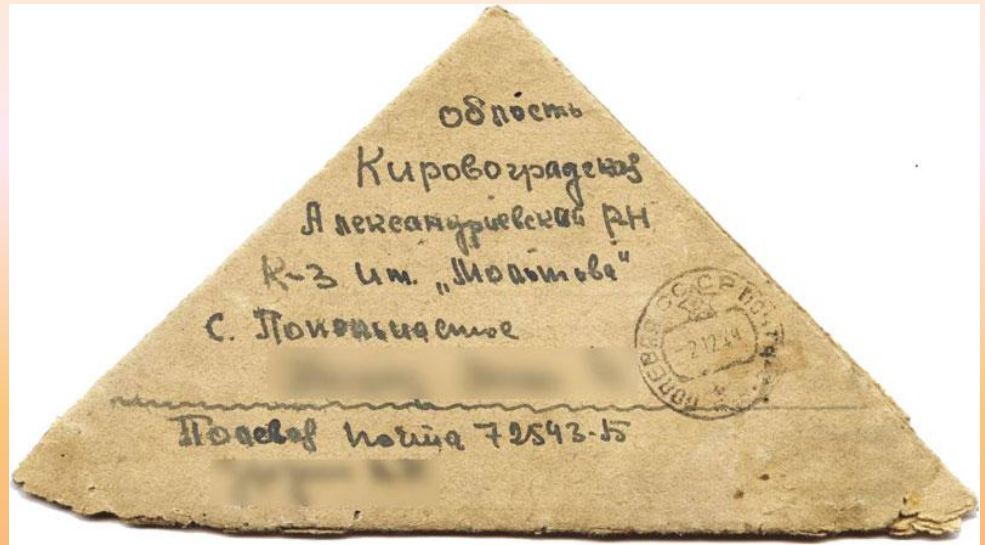 область
Кировоградская
Александриевский РН
К-з им. „Молотова"
с.
Полевая почта 72543-Б
ПОЛЕВАЯ ПОЧТА СССР
-2 12 44